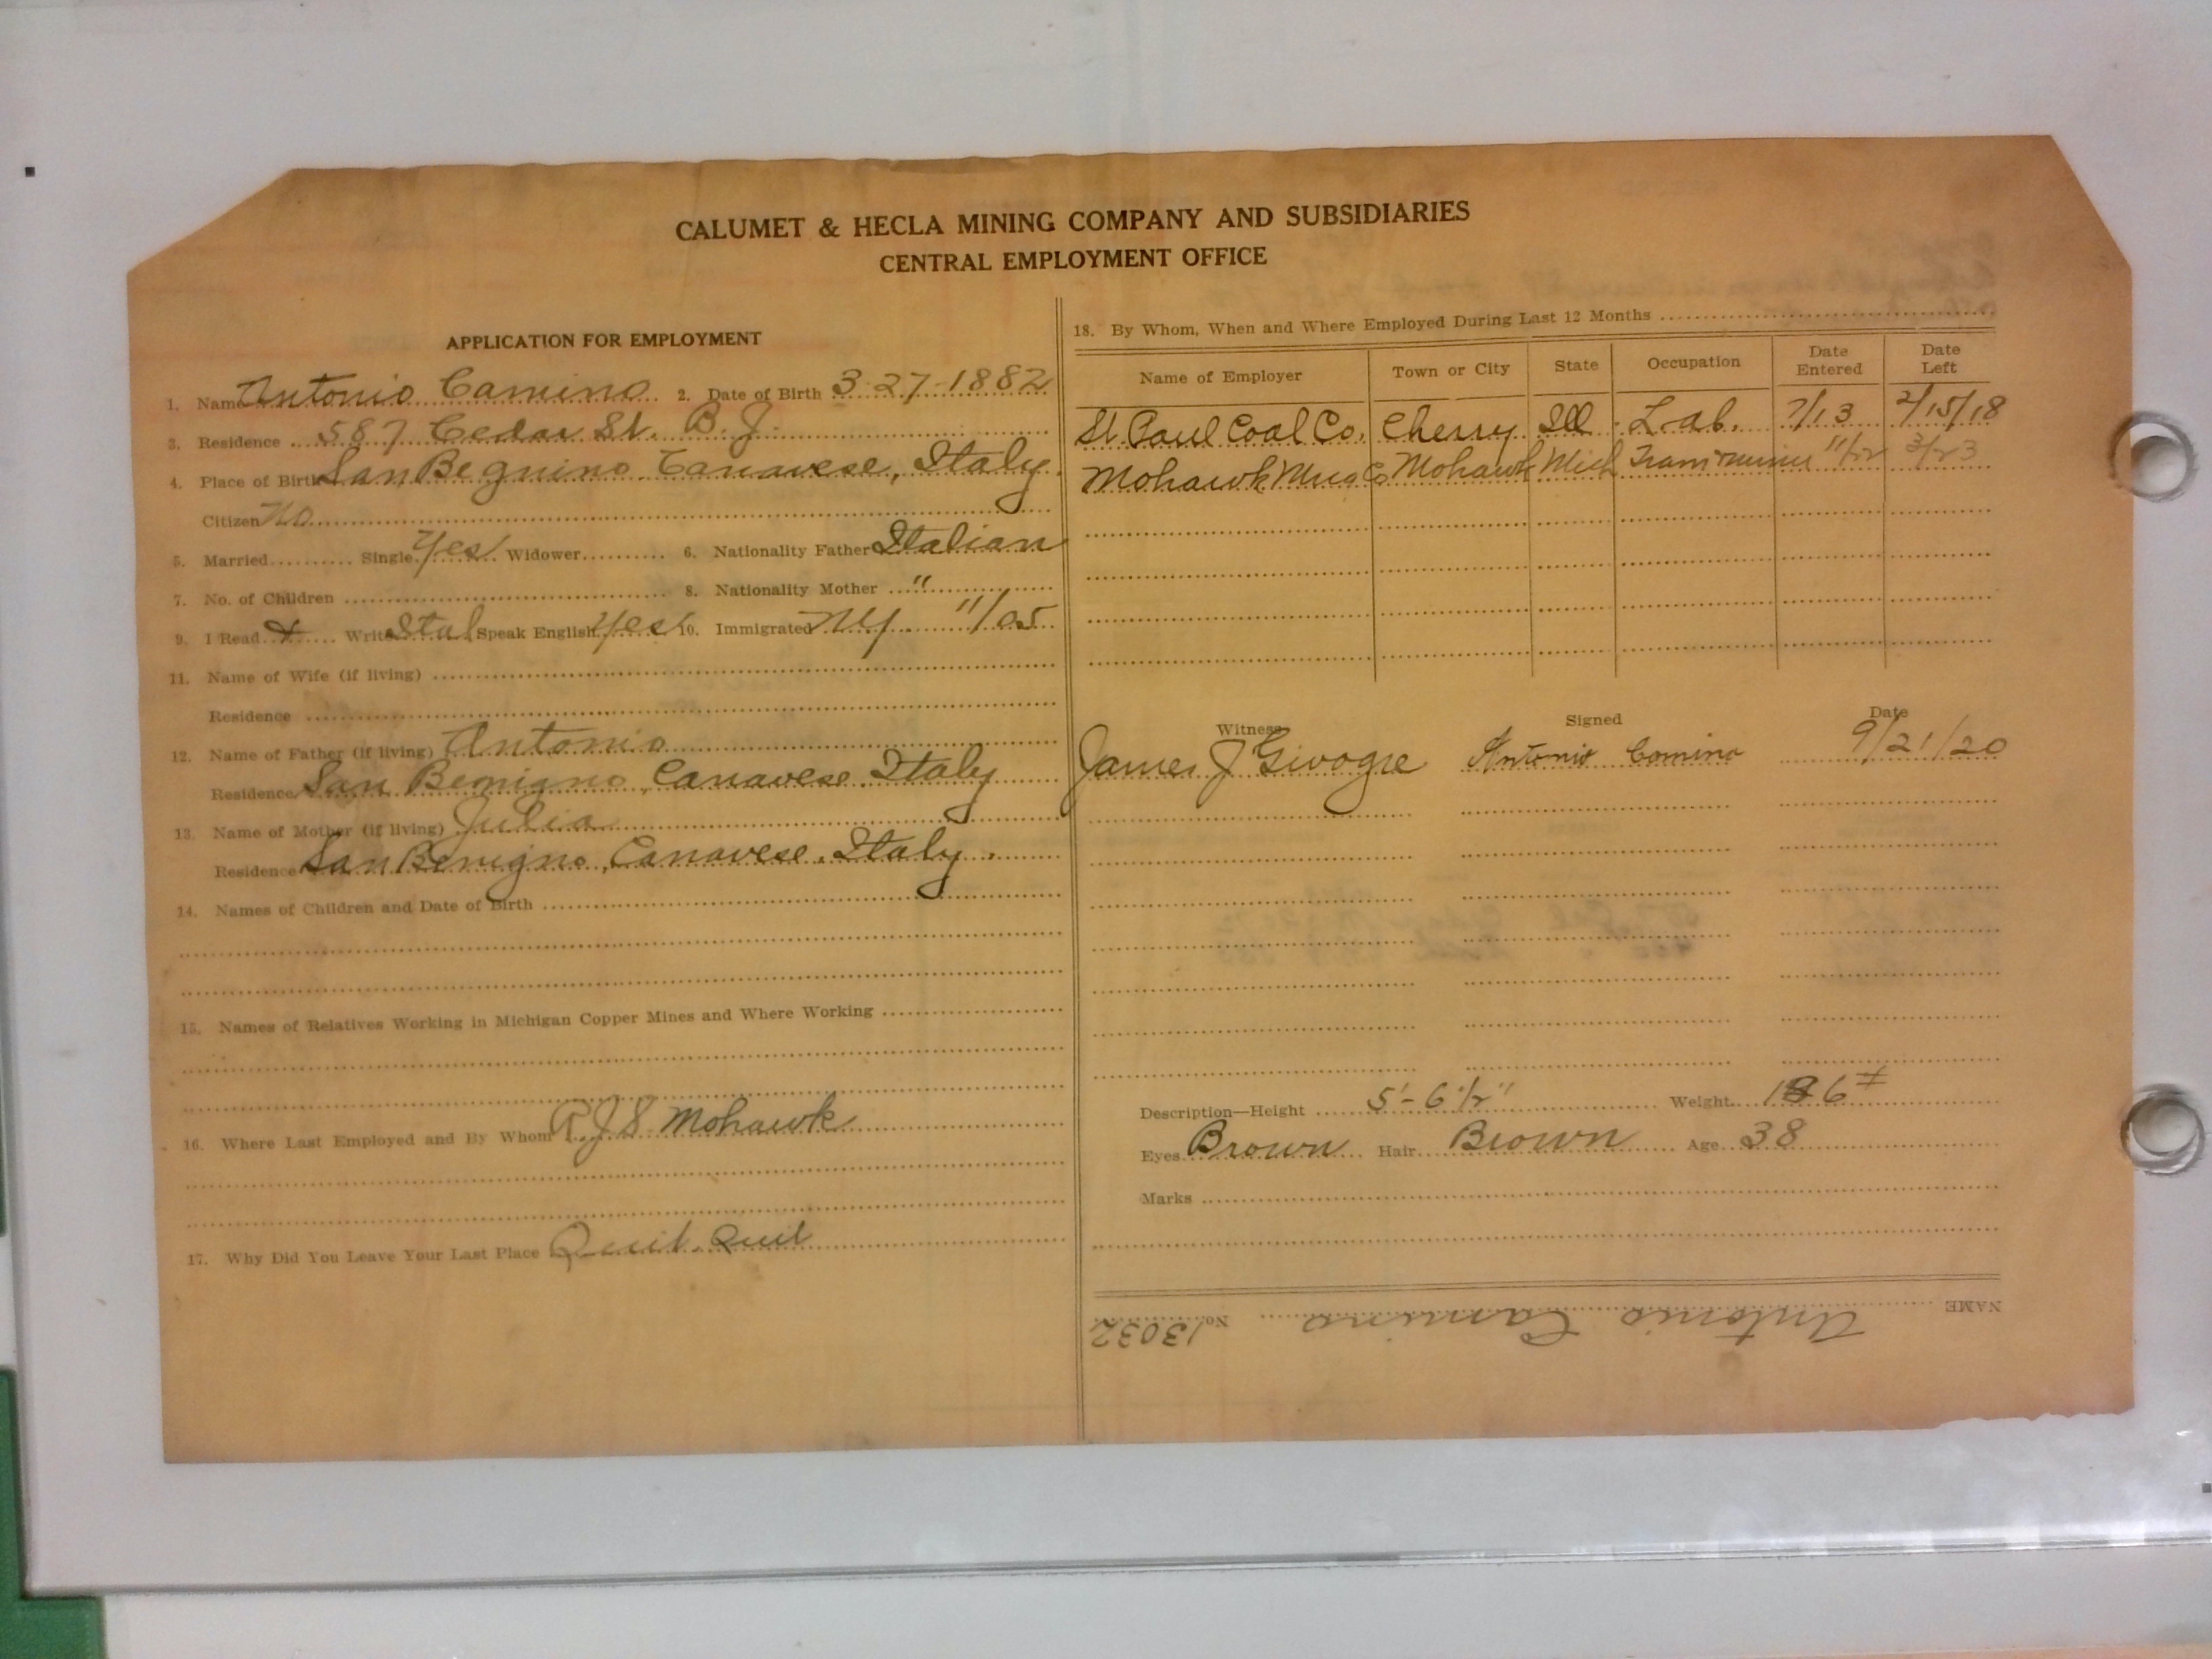 CALUMET & HECLA MINING COMPANY AND SUBSIDIARIES
CENTRAL EMPLOYMENT OFFICE
APPLICATION FOR EMPLOYMENT
1. Name Antonio Camino 2. Date of Birth 3-27-1882
3. Residence 587 Cedar St. B. J.
4. Place of Birth San Begnino Canavese, Italy.
Citizen No
5. Married Single Yes Widower 6. Nationality Father Italian
7. No. of Children 8. Nationality Mother "
9. I Read & Write Ital Speak English Yes 10. Immigrated NY 11/05
11. Name of Wife (if living)
Residence
12. Name of Father (if living) Antonio
Residence San Benigno, Canavese Italy
13. Name of Mother (if living) Julia
Residence San Benigno, Canavese, Italy.
14. Names of Children and Date of Birth
15. Names of Relatives Working in Michigan Copper Mines and Where Working
16. Where Last Employed and By Whom Mohawk
17. Why Did You Leave Your Last Place Quit. Quit
18. By Whom, When and Where Employed During Last 12 Months
Name of Employer Town or City State Occupation Date Entered Date Left
St. Paul Coal Co. Cherry Ill Lab. 7/13 2/15/18
Mohawk Mng Co Mohawk Mich 11/22 3/23
Witness Signed Date
James J Antonio Comino 9/21/20
Description—Height 5'-6 1/2" Weight
Eyes Brown Hair Brown Age 38
Marks
NAME Antonio Camino No. 13032